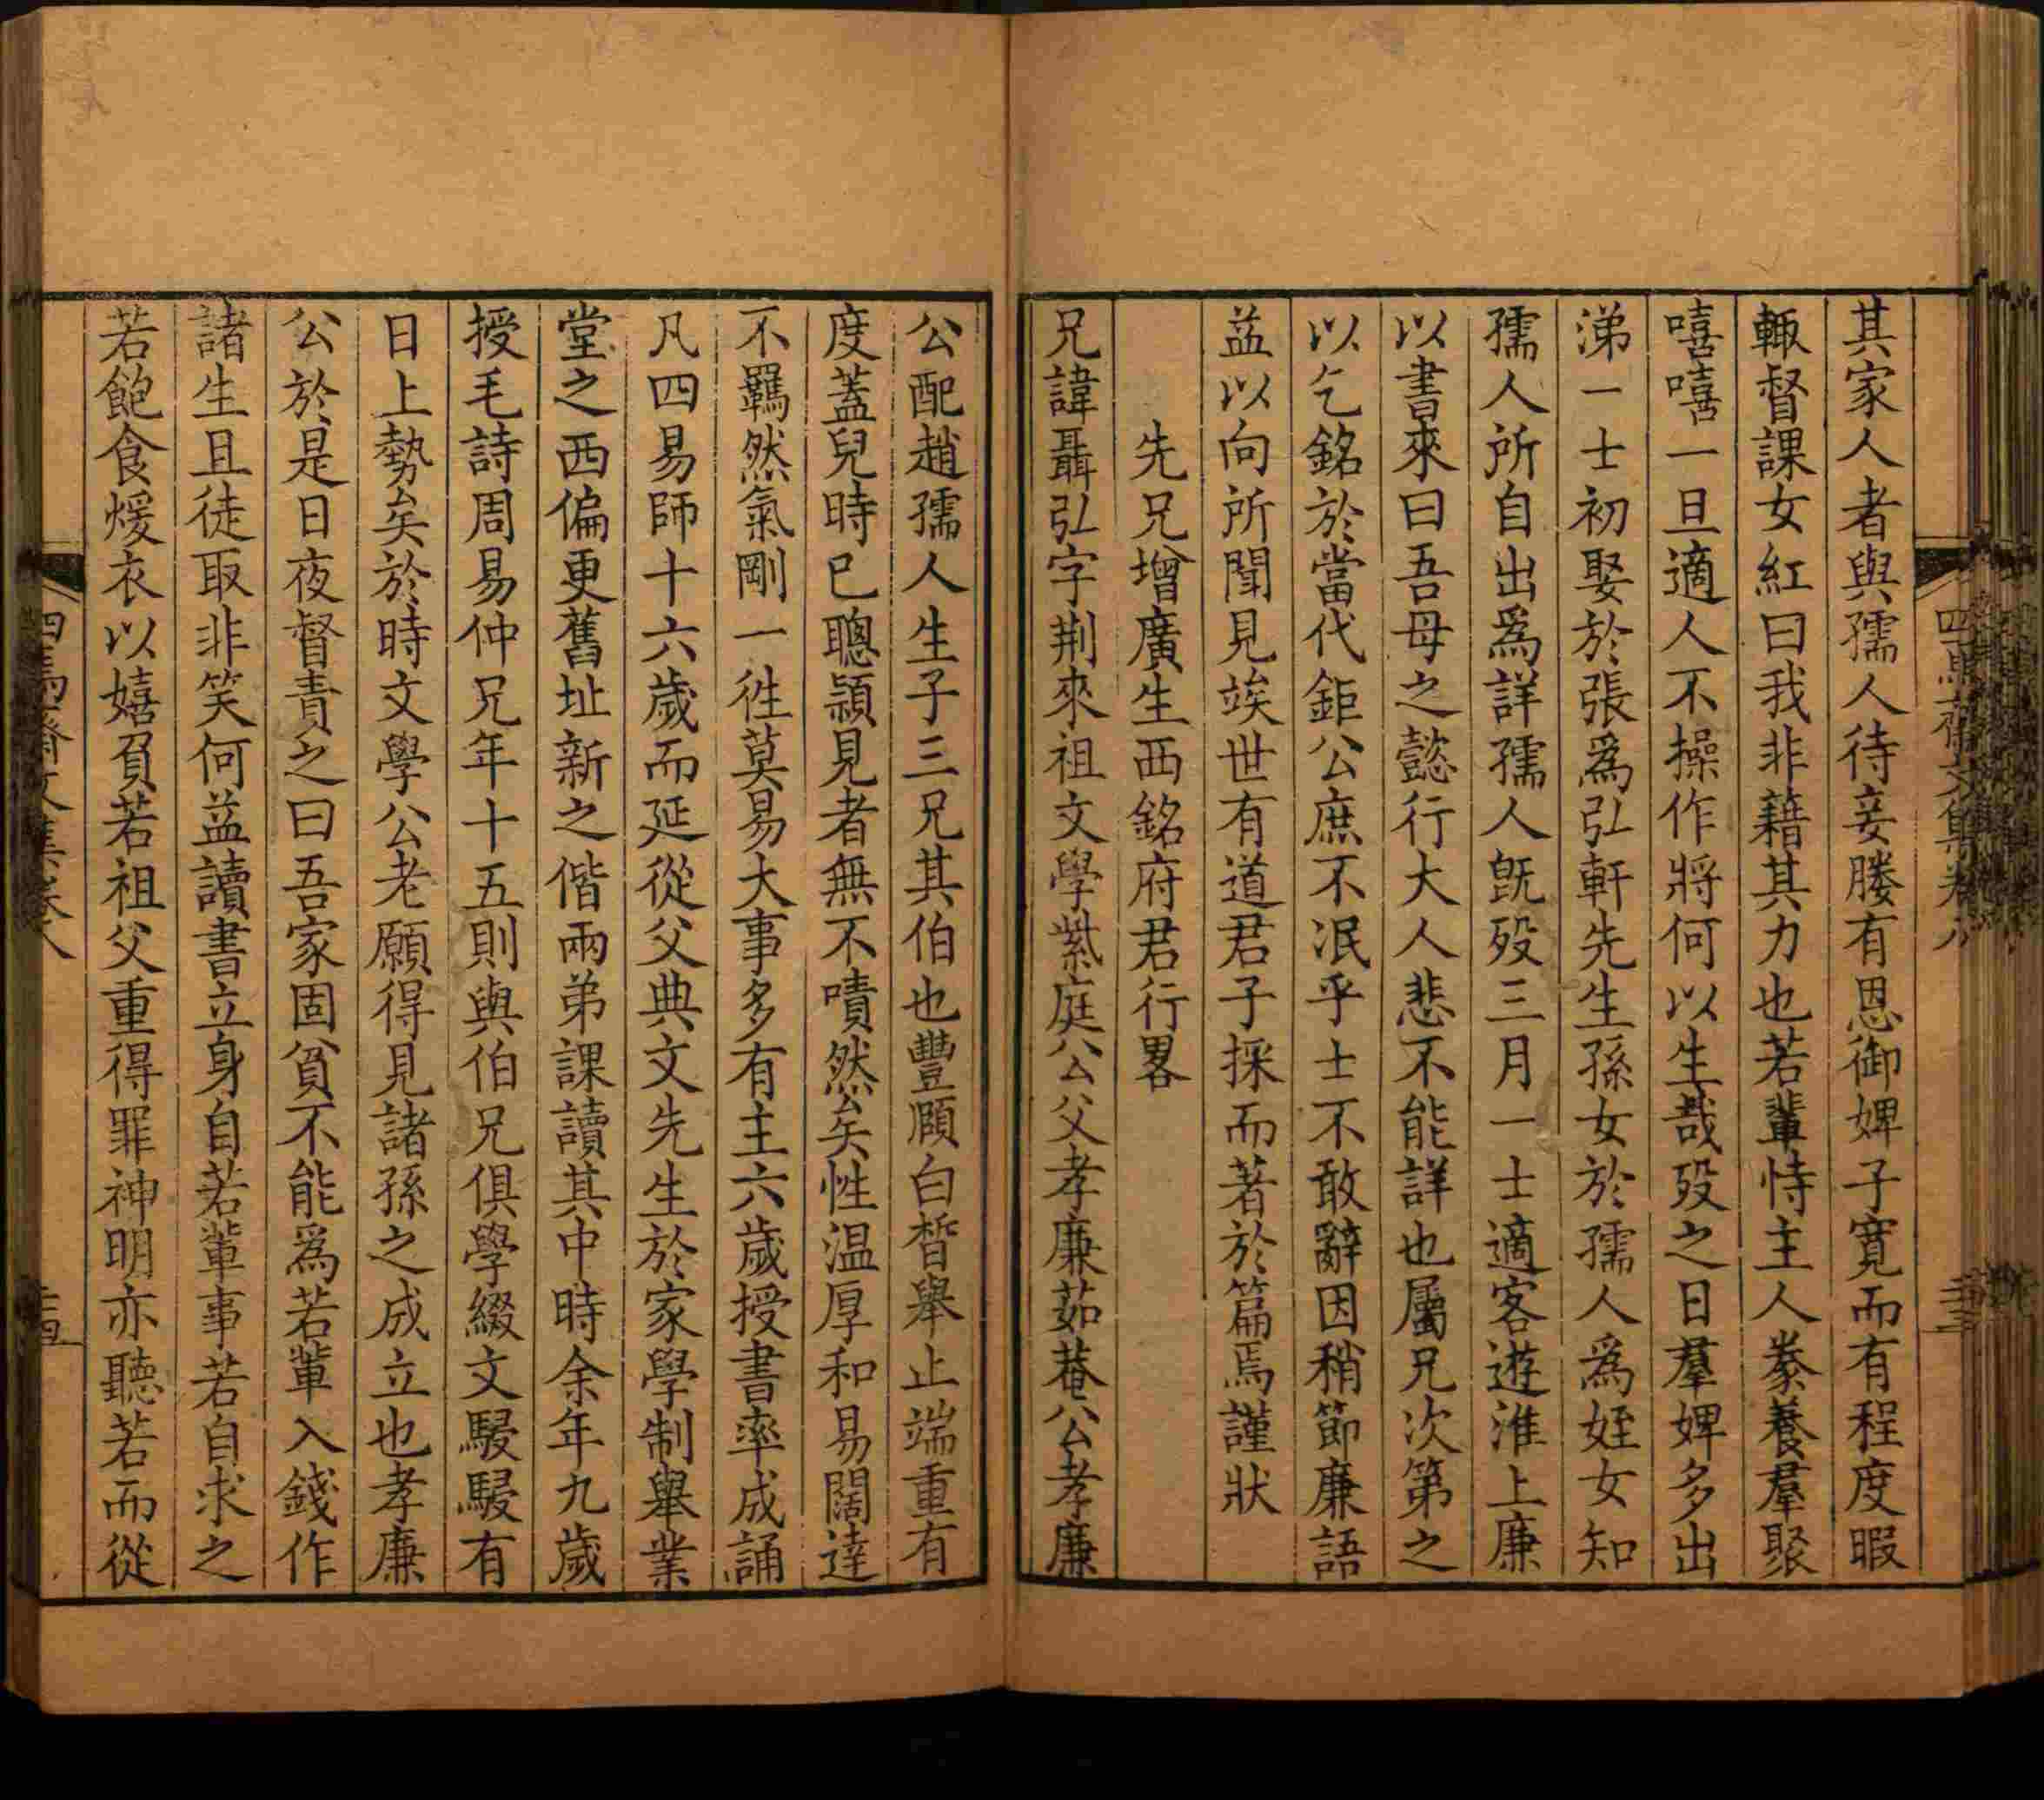 其家人者與孺人待妾媵有恩御婢子寬而有程度暇
輙督課女紅曰我非藉其力也若輩恃主人豢養羣聚
嘻嘻一旦適人不操作將何以生哉歿之日羣婢多出
涕一士初娶於張爲弘軒先生孫女於孺人爲姪女知
孺人所自出爲詳孺人旣歿三月一士適客遊淮上廉
以書來曰吾母之懿行大人悲不能詳也屬兄次第之
以乞銘於當代鉅公庶不泯乎士不敢辭因稍節廉語
益以向所聞見竢世有道君子採而著於篇焉謹狀
先兄增廣生西銘府君行畧
兄諱聶弘字荆來祖文學紫庭公父孝廉茹菴公孝廉
公配趙孺人生子三兄其伯也豐頤白晳舉止端重有
度蓋兒時已聰頴見者無不嘖然矣性温厚和易闊達
不羈然氣剛一徃莫易大事多有主六歲授書率成誦
凡四易師十六歲而延從父典文先生於家學制舉業
堂之西偏更舊址新之偕兩弟課讀其中時余年九歲
授毛詩周易仲兄年十五則與伯兄俱學綴文駸駸有
日上勢矣於時文學公老願得見諸孫之成立也孝廉
公於是日夜督責之曰吾家固貧不能爲若輩入錢作
諸生且徒取非笑何益讀書立身自若輩事若自求之
若飽食煖衣以嬉負若祖父重得罪神明亦聽若而從
四焉齋文集卷八